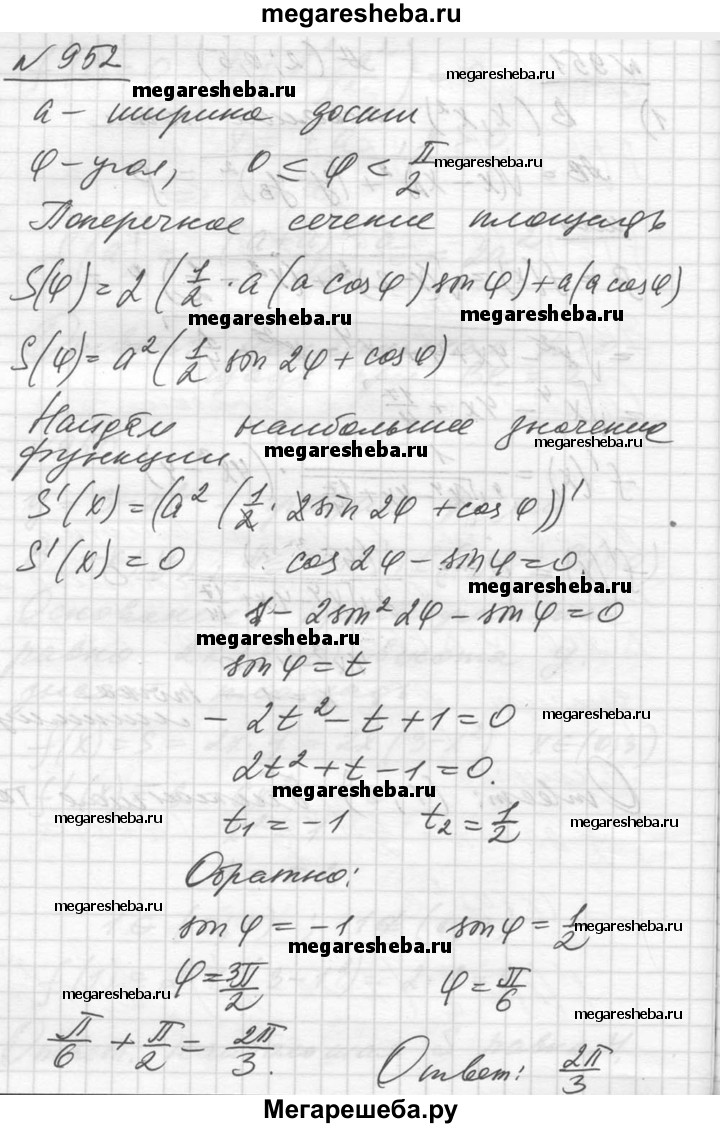 megaresheba.ru
№952
megaresheba.ru
a - ширина доски
φ - угол, 0 ≤ φ < π/2
megaresheba.ru
Поперечное сечение площадь
S(φ) = 2 (1/2 · a (a cos φ) sin φ) + a(a cos φ)
megaresheba.ru megaresheba.ru
S(φ) = a² (1/2 sin 2φ + cos φ)
Найдём наибольшее значение
megaresheba.ru megaresheba.ru
функции
S'(x) = (a² (1/2 · 2sin 2φ + cos φ))'
S'(x) = 0 cos 2φ - sin φ = 0.
megaresheba.ru
1 - 2sin² 2φ - sin φ = 0
megaresheba.ru
sin φ = t
- 2t² - t + 1 = 0
megaresheba.ru
2t² + t - 1 = 0.
megaresheba.ru
megaresheba.ru t₁ = -1 t₂ = 1/2 megaresheba.ru
Обратно:
megaresheba.ru
sin φ = -1 sin φ = 1/2
megaresheba.ru megaresheba.ru
φ = 3π/2 φ = π/6
megaresheba.ru
π/6 + π/2 = 2π/3.
Ответ: 2π/3
Мегарешеба.ру